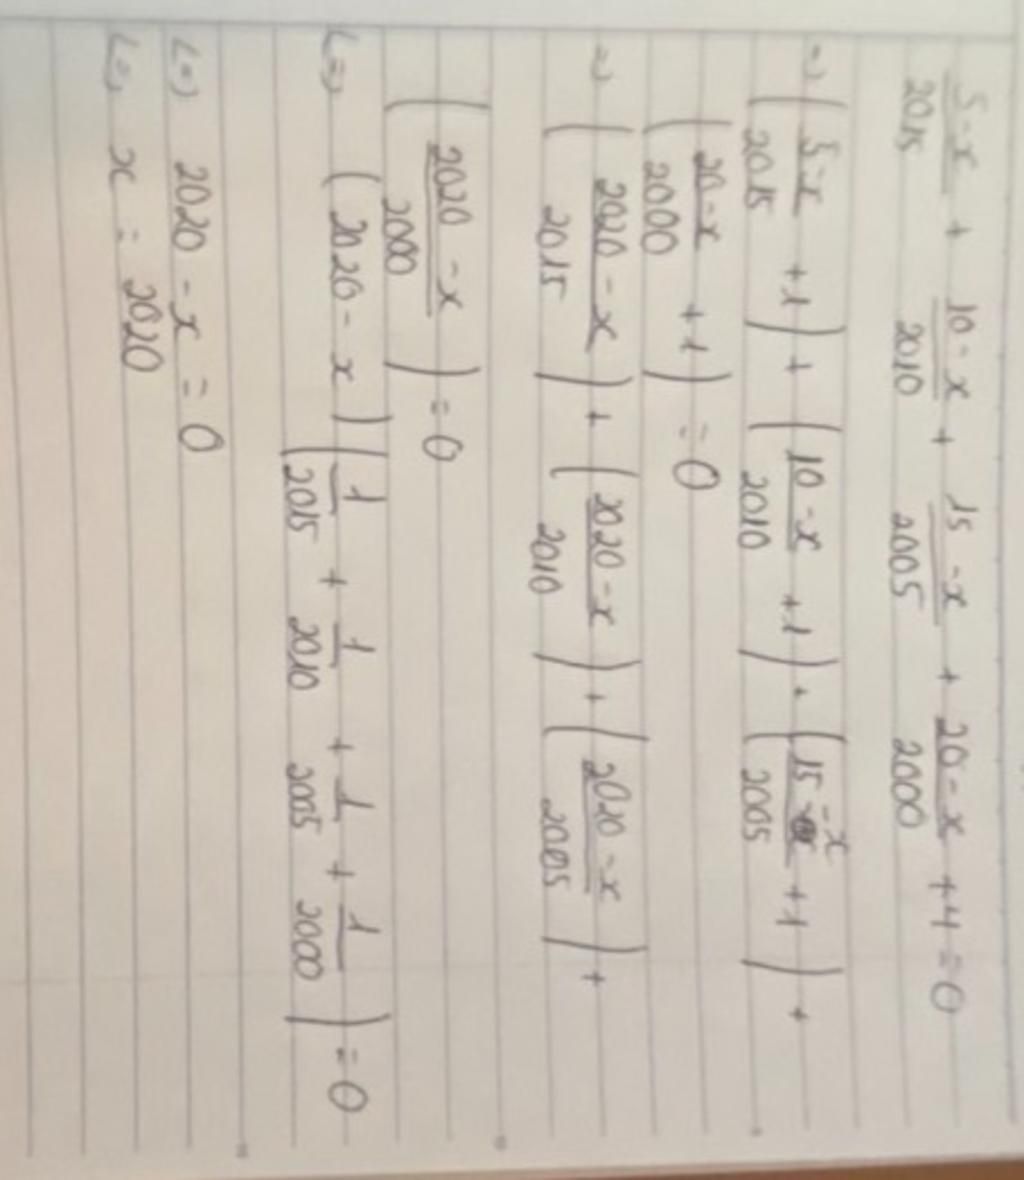 5-x/2015 + 10-x/2010 + 15-x/2005 + 20-x/2000 + 4 = 0
=> (5-x/2015 + 1) + (10-x/2010 + 1) + (15-x/2005 + 1) +
(20-x/2000 + 1) = 0
=> (2020-x/2015) + (2020-x/2010) + (2020-x/2005) +
(2020-x/2000) = 0
<=> (2020-x)(1/2015 + 1/2010 + 1/2005 + 1/2000) = 0
<=> 2020-x = 0
<=> x = 2020